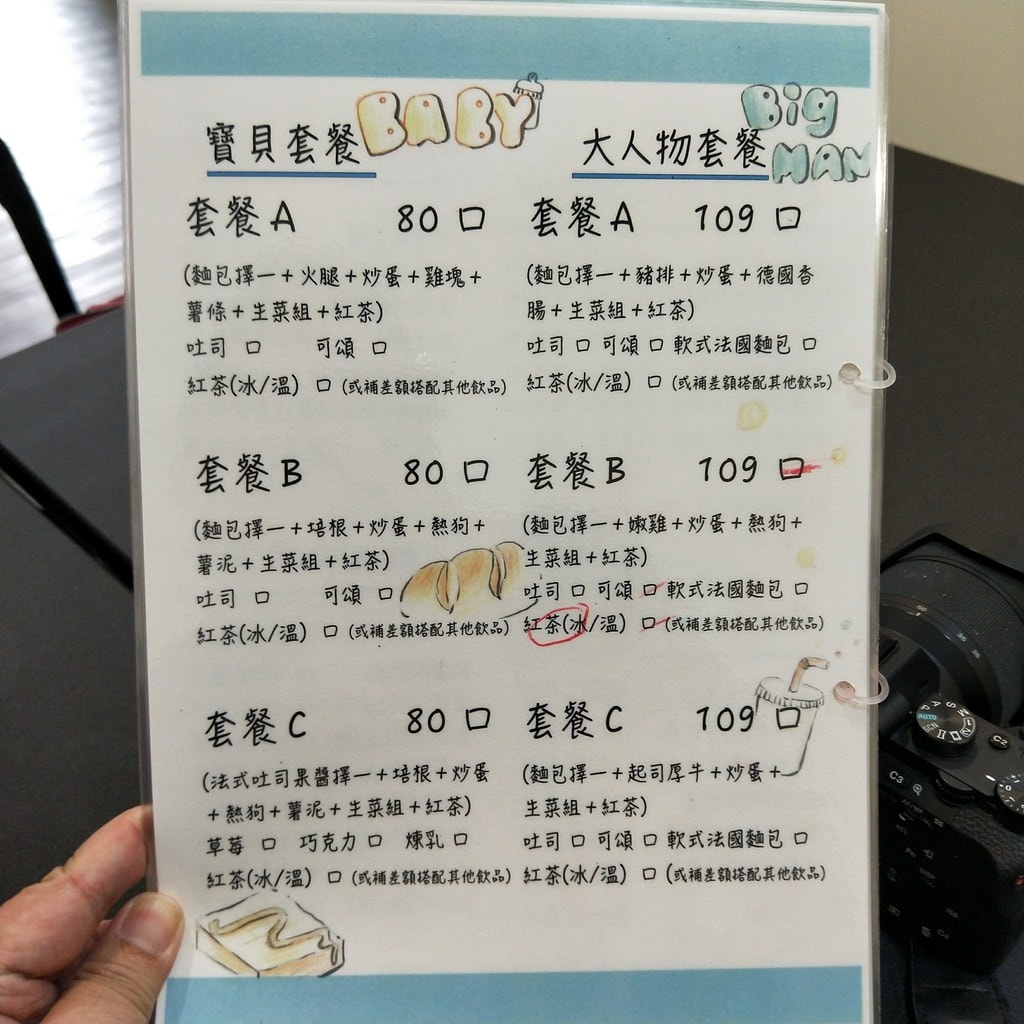 寶貝套餐 BABY
套餐A 80 口
(麵包擇一+火腿+炒蛋+雞塊+
薯條+生菜組+紅茶)
吐司 口 可頌 口
紅茶(冰/溫) 口 (或補差額搭配其他飲品)
套餐B 80 口
(麵包擇一+培根+炒蛋+熱狗+
薯泥+生菜組+紅茶)
吐司 口 可頌 口
紅茶(冰/溫) 口 (或補差額搭配其他飲品)
套餐C 80 口
(法式吐司果醬擇一+培根+炒蛋
+熱狗+薯泥+生菜組+紅茶)
草莓 口 巧克力 口 煉乳 口
紅茶(冰/溫) 口 (或補差額搭配其他飲品)
大人物套餐 Big MAN
套餐A 109 口
(麵包擇一+豬排+炒蛋+德國香
腸+生菜組+紅茶)
吐司 口 可頌 口 軟式法國麵包 口
紅茶(冰/溫) 口 (或補差額搭配其他飲品)
套餐B 109 口
(麵包擇一+嫩雞+炒蛋+熱狗+
生菜組+紅茶)
吐司 口 可頌 口 軟式法國麵包 口
紅茶(冰/溫) 口 (或補差額搭配其他飲品)
套餐C 109 口
(麵包擇一+起司厚牛+炒蛋+
生菜組+紅茶)
吐司 口 可頌 口 軟式法國麵包 口
紅茶(冰/溫) 口 (或補差額搭配其他飲品)
AUTO
C2
C3